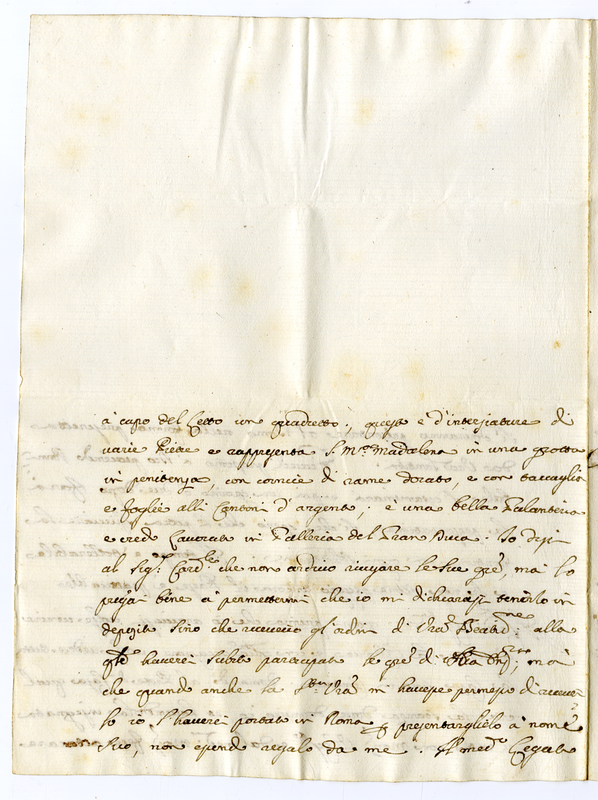 à capo del Letto un quadretto; questo è d'intersiature di
varie Pietre e rappresenta S. Ma. Madalena in una grotta
in penitenza, con cornice di rame dorato, e con
e foglie alli Cantoni d'argento; è una bella Galanteria
e credo Lavorata in Galleria del Gran Duca. Io dissi
al Sigr. Cardle. che non ardivo ricusare le sue gre. ma lo
bene à permettermi che io mi dichiarassi tenerlo in
deposito sino che ricevevo gl'ordini di Vra. Beatidne. alla
qle haverei subito participate le gre di ; mà
che quando anche la Stà Vra mi havesse permesso di
lo io l'haverei portato in Roma e presentarglielo à nome
suo, non essendo regalo da me. Il medo. Legato